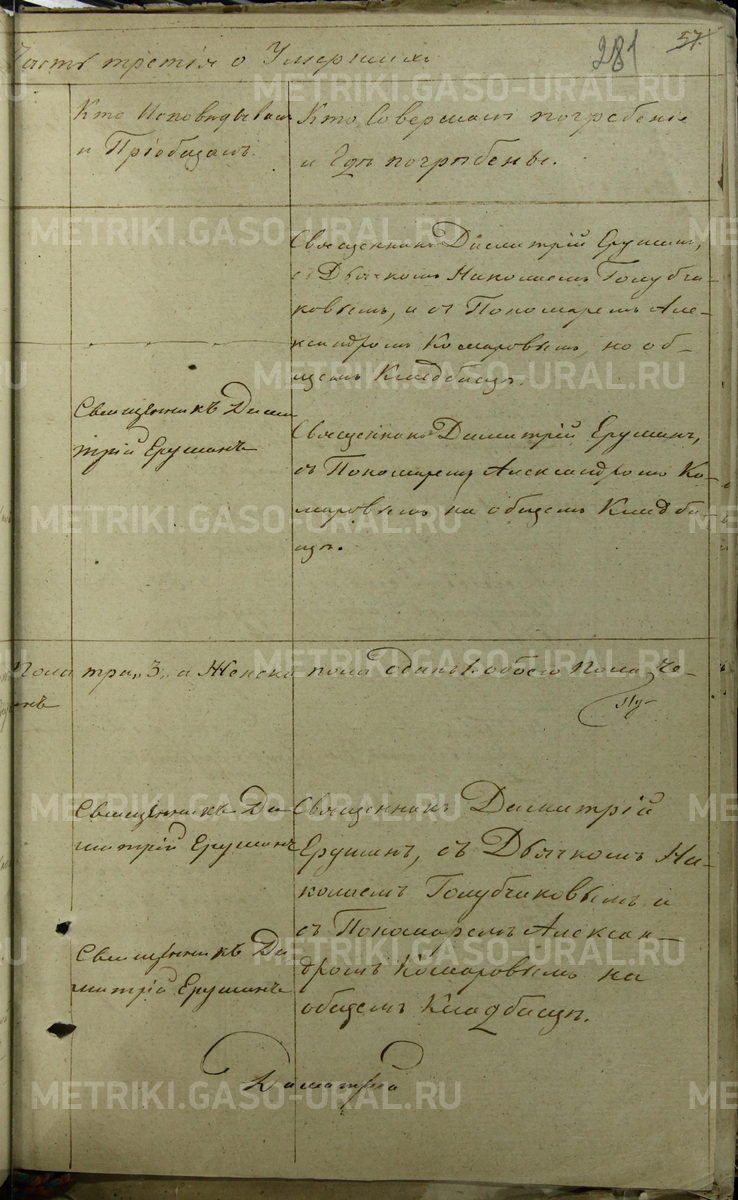 Часть третія о Умершихъ
281
57.
Кто Исповѣдывалъ
и Пріобщалъ.
Кто Совершалъ погребеніе
и Гдѣ погрѣбены.
Священникъ Димитрій Ерушинъ,
съ Дьячкомъ Николаемъ Голубчи-
ковымъ, и съ Пономаремъ Але-
ксандромъ Комаровымъ, на об-
щемъ Кладбищѣ.
Священникъ Дими
трій Ерушинъ
Священникъ Димитрій Ерушинъ,
съ Пономаремъ Александромъ Ко-
маровымъ на общемъ Кладби-
щѣ.
Пола три „3„ и Женска пола одинъ 1. обоего Пола Че-
Священникъ Ди
митрій Ерушинъ
Священникъ Димитрій
Ерушинъ, съ Дьячкомъ Ни-
колаемъ Голубчиковымъ и
съ Пономаремъ Алексан-
дромъ Комаровымъ на
общемъ Кладбищѣ.
Священникъ Ди
митрій Ерушинъ
Димитрій
METRIKI.GASO-URAL.RU